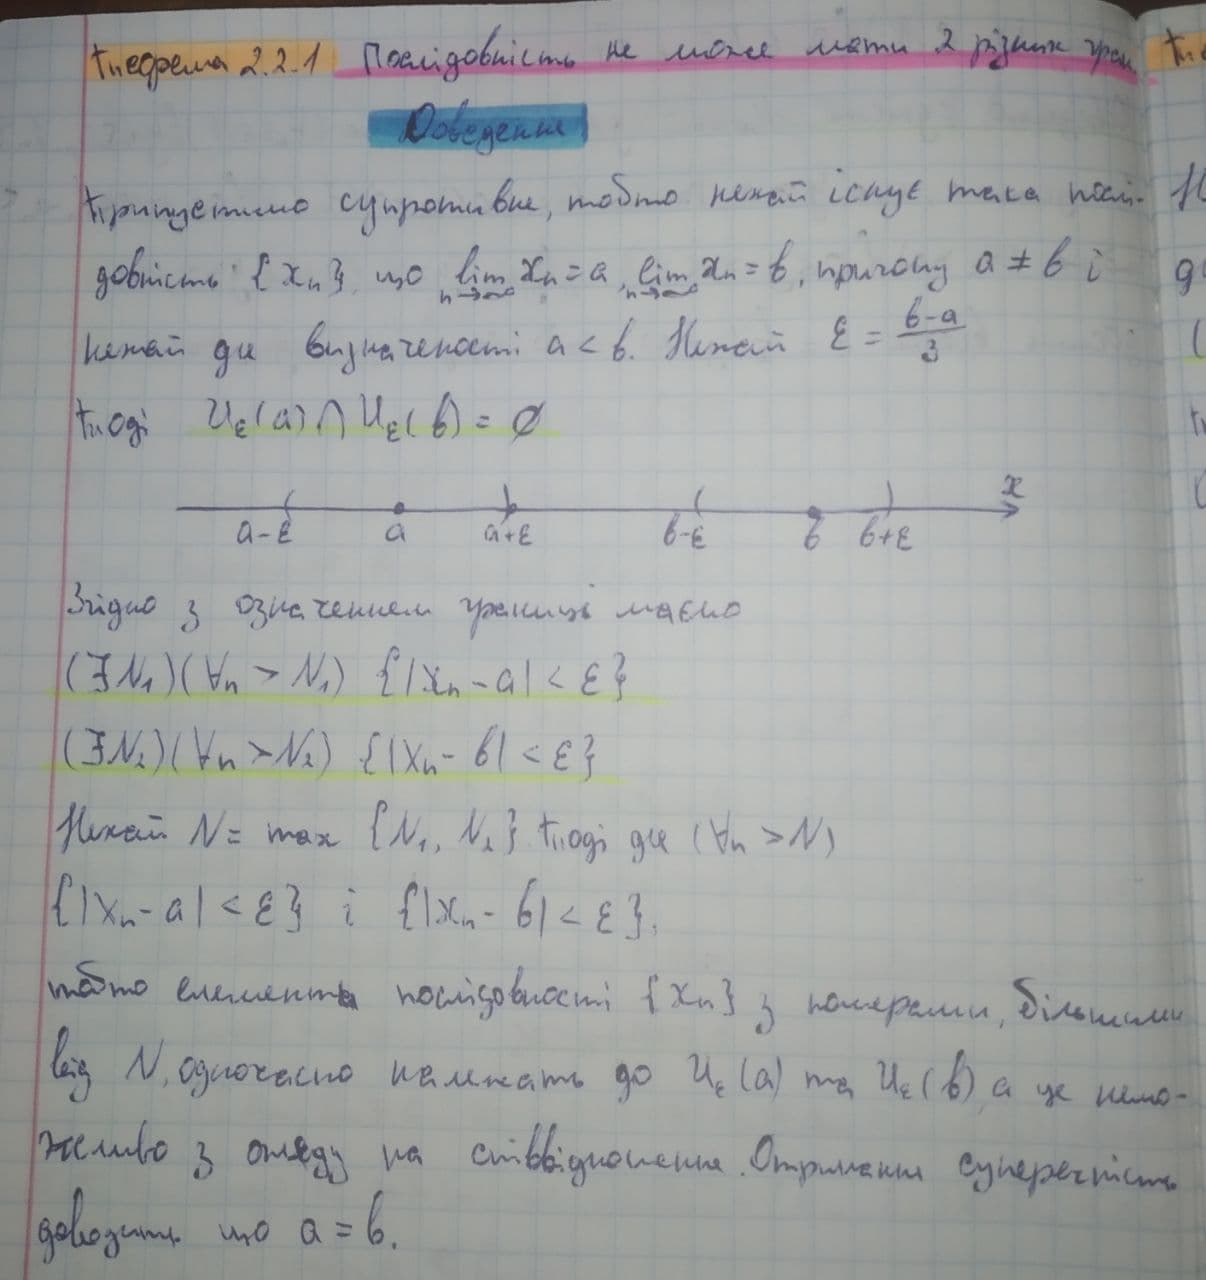 Теорема 2.2.1 Послідовність не може мати 2 різних гран
Доведення
Припустимо супротивне, тобто нехай існує така послі-
довність {xₙ}, що lim xₙ = a, lim xₙ = b, причому a ≠ b і
n→∞ n→∞
нехай для визначеності a < b. Нехай ε = (b-a)/3
Тоді Uε(a) ∩ Uε(b) = ∅
x
a-ε a a+ε b-ε b b+ε
Згідно з означенням границі маємо
(∃N₁)(∀n > N₁) {|xₙ - a| < ε}
(∃N₂)(∀n > N₂) {|xₙ - b| < ε}
Нехай N = max {N₁, N₂} Тоді для (∀n > N)
{|xₙ - a| < ε} і {|xₙ - b| < ε}.
тобто елементи послідовності {xₙ} з номерами, більшими
від N, одночасно належать до Uε(a) та Uε(b), а це немо-
жливо з огляду на співвідношення. Отримана суперечність
доводить що a = b.